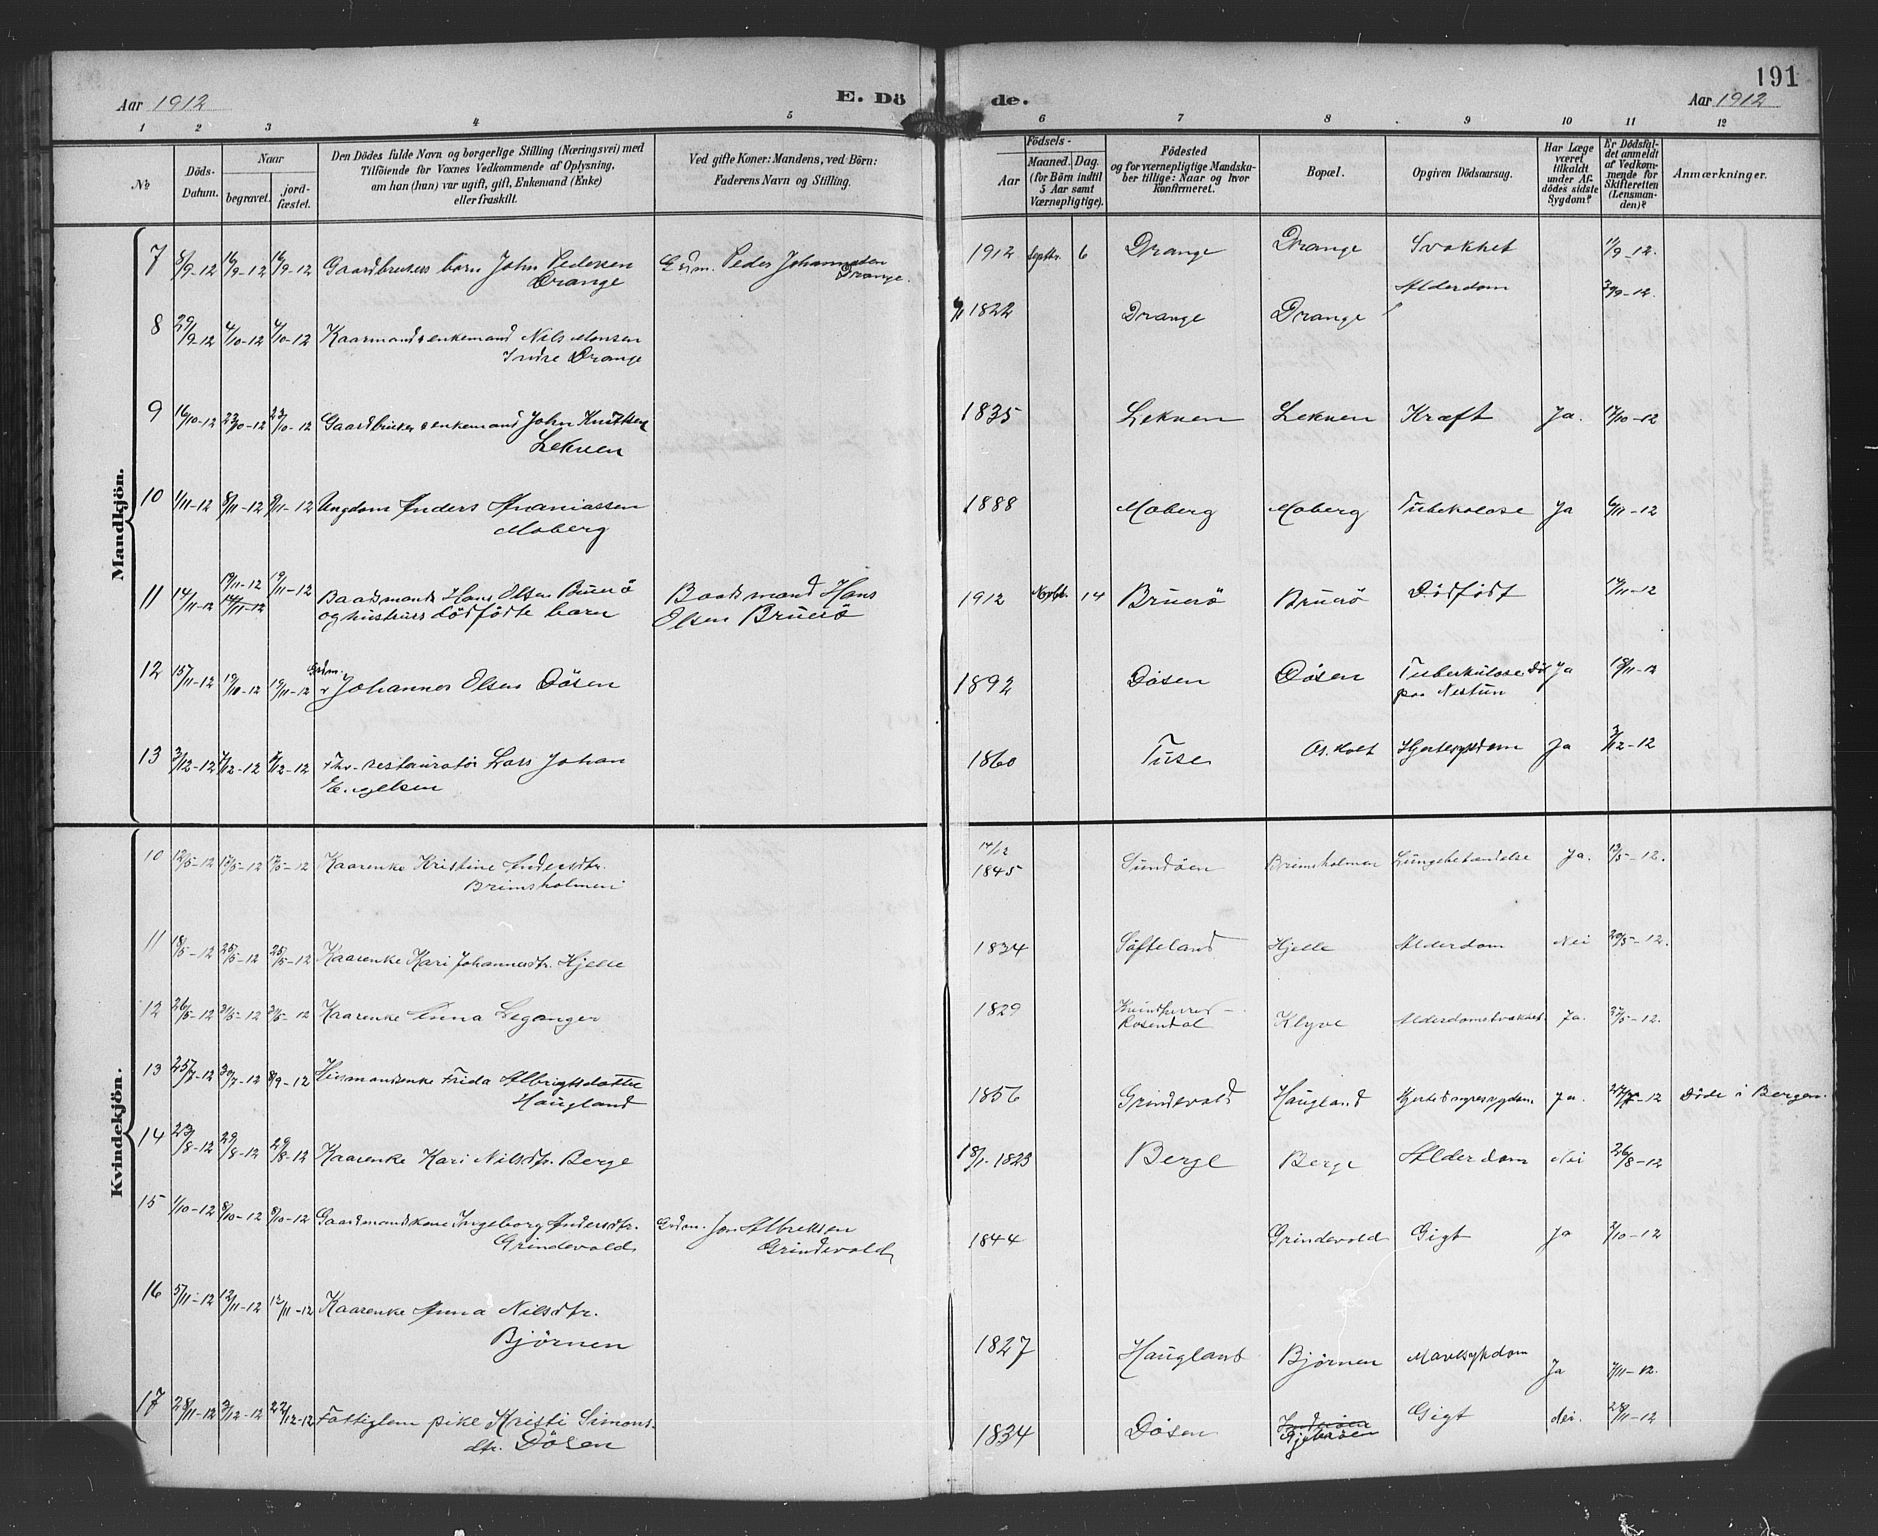 191
Aar 1912
E. Dö
de.
Aar 1912
1 2 3 4 5 6 7 8 9 10 11 12
№
Döds-
Datum.
Naar
begravet.
jord-
fæstet.
Den Dödes fulde Navn og borgerlige Stilling (Næringsvei) med
Tilföiende for Voxnes Vedkommende af Oplysning,
om han (hun) var ugift, gift, Enkemand (Enke)
eller fraskilt.
Ved gifte Koner: Mandens, ved Börn:
Faderens Navn og Stilling.
Födsels-
Aar
Maaned. Dag.
(for Börn indtil
5 Aar samt
Værnepligtige).
Födested
og for værnepligtige Mandska-
ber tillige: Naar og hvor
konfirmeret.
Bopæl.
Opgiven Dödsaarsag.
Har Læge
været
tilkaldt
under Af-
dödes sidste
Sygdom?
Er Dödsfal-
det anmeldt
af Vedkom-
mende for
Skifteretten
(Lensman-
den)?
Anmærkninger.
Mandkjön.
7 8/9-12 16/9-12 16/9-12 Gaardbrukers barn John Pedersen
Drange
Grdm. Peder Johannesen
Drange.
1912 Septbr. 6 Drange Drange Svakhet 17/9-12.
8 29/9-12 4/10-12 4/10-12 Kaarmand & enkemand Nils Monsen
Indre Drange
1822 Drange Drange Alderdom 30/9-12.
9 16/10-12 23/10-12 23/10-12 Gaardbruker & enkemand John Knutsen
Lekven
1835 Lekven Lekven Kræft Ja. 17/10-12
10 1/11-12 8/11-12 9/11-12 Ungdom Anders Ananiassen
Moberg
1888 Moberg Moberg Tuberkolose Ja 6/11-12
11 14/11-12 19/11-12 19/11-12
14/11-12
Baadsmand Hans Olsen Bruerö
og hustrues dödfödte barn
Baadsmand Hans
Olsen Bruerö
1912 Novbr. 14 Bruerö Bruerö Dödfödt 14/11-12
12 15/11-12 19/10-12 19/11-12 Grdm.
Johannes Olsen Dösen
1892 Dösen Dösen Tuberkulose Död
paa Nestun
Ja 18/11-12
13 3/12-12 7/12-12 7/12-12 Fhv. restauratör Lars Johan
Engelsen
1860 Tuse Os. Hvet Hjertesygdom Ja 3/12-12
Kvindekjön.
10 12/5-12 17/5-12 17/5-12 Kaarenke Kristine Andersdtr.
Brimsholmen
14/12
1845 Sundöen Brimsholmen Lungebetændelse Ja. 13/5-12.
11 18/5-12 25/5-12 25/5-12 Kaarenke Kari Johannesdtr. Hjelle
1834 Söfteland Hjelle Alderdom Nei 20/5-12.
12 26/5-12 31/5-12 31/5-12 Kaarenke Anna Leganger
1829 Kvindherred -
Rosendal
Klyve Alderdomssvakhet. Ja. 27/5-12.
13 25/7-12 30/7-12 8/9-12 Husmandsenke Frida Albrigtsdatter
Haugland
1856 Grindevold Haugland Ja. 27/7-12 Döde i Bergen.
14 23/8-12 29/8-12 29/8-12 Kaarenke Kari Nilsdtr. Berge
18/1-1823 Berge Berge Alderdom Nei 26/8-12
15 1/10-12 8/10-12 8/10-12 Gaardmandskone Ingeborg Andersdtr.
Grindevold
Grdm. Jon Albreksen
Grindevold
1844 Grindevold Gigt Ja 2/10-12
16 5/11-12 12/11-12 12/11-12 Kaarenke Anna Nilsdtr.
Björnen
1827 Haugland Björnen Mavesykdom Ja 7/11-12.
17 28/11-12 3/12-12 22/12-12 Fattiglem pike Kristi Simons-
dtr. Dösen
1834 Dösen Gigt Nei. 28/11-12